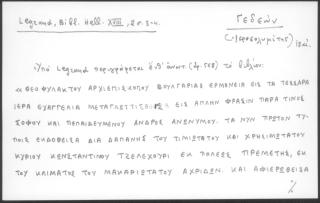 Legrand, Bibl. Hell. XVIII, 2, σ. 3-4.
Γεδεών
(-Ιεροσολυμίτης)
Ὑπὸ Legrand περιγράφεται ὑπ' ἀριθ. 558 τὸ βιβλίον:
ΘΕΟΦΥΛΑΚΤΟΥ ΑΡΧΙΕΠΙΣΚΟΠΟΥ ΒΟΥΛΓΑΡΙΑΣ ΕΡΜΗΝΕΙΑ ΕΙΣ ΤΑ ΤΕΣΣΑΡΑ
ΙΕΡΑ ΕΥΑΓΓΕΛΙΑ ΕΙΣ ΑΠΛΗΝ ΦΡΑΣΙΝ ΠΑΡΑ ΤΙΝΟΣ
ΣΟΦΟΥ ΚΑΙ ΠΕΠΑΙΔΕΥΜΕΝΟΥ ΑΝΔΡΟΣ ΑΝΩΝΥΜΟΥ. ΤΑ ΝΥΝ ΠΡΩΤΟΝ ΤΥ-
ΠΟΙΣ ΕΚΔΟΘΕΙΣΑ ΔΙΑ ΔΑΠΑΝΗΣ ΤΟΥ ΤΙΜΙΩΤΑΤΟΥ ΚΑΙ ΧΡΗΣΙΜΩΤΑΤΟΥ
ΚΥΡΙΟΥ ΚΩΝΣΤΑΝΤΙΝΟΥ ΤΖΕΛΕΧΟΥΡΙ ΕΚ ΠΟΛΕΩΣ ΠΡΕΜΕΤΗΣ, ΕΚ
ΤΟΥ ΚΛΙΜΑΤΟΣ ΤΟΥ ΜΑΚΑΡΙΩΤΑΤΟΥ ΑΧΡΙΔΩΝ. ΚΑΙ ΑΦΙΕΡΩΘΕΙΣΑ